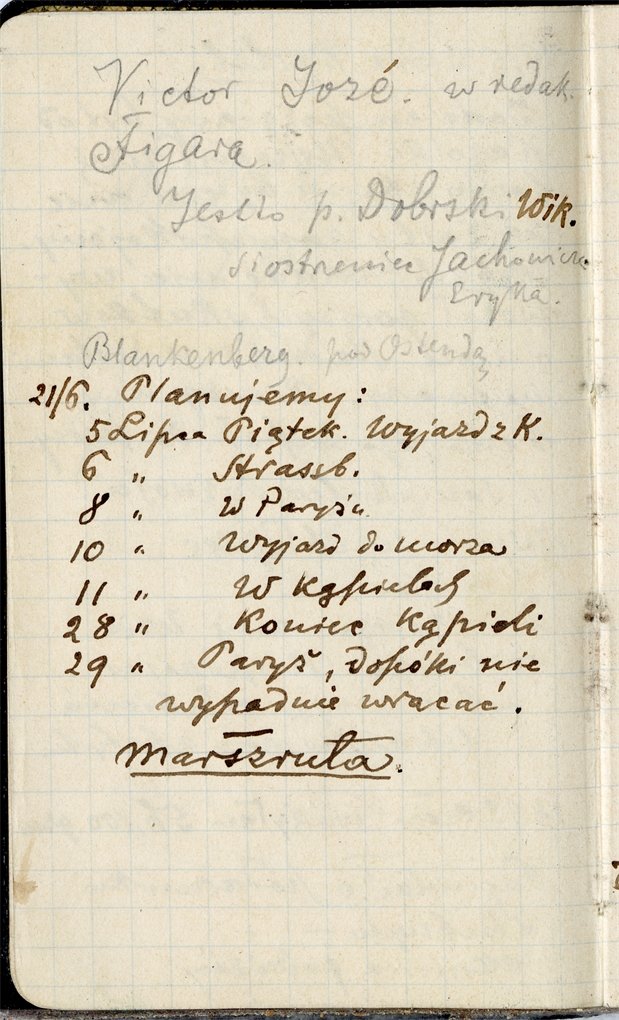 Victor Jozé. w redak.
Figara.
Jestto p. Dobrski Wik.
siostrzeniec Jachowicza
Eryka.
Blankenberg. pod Ostendą
21/6. Planujemy:
5 Lipca Piątek. Wyjazd z K.
6 " Strassb.
8 " W Paryżu
10 " Wyjazd do morza
11 " W kąpielach
28 " Koniec Kąpieli
29 " Paryż, dopóki nie
wypadnie wracać.
Marszruta.